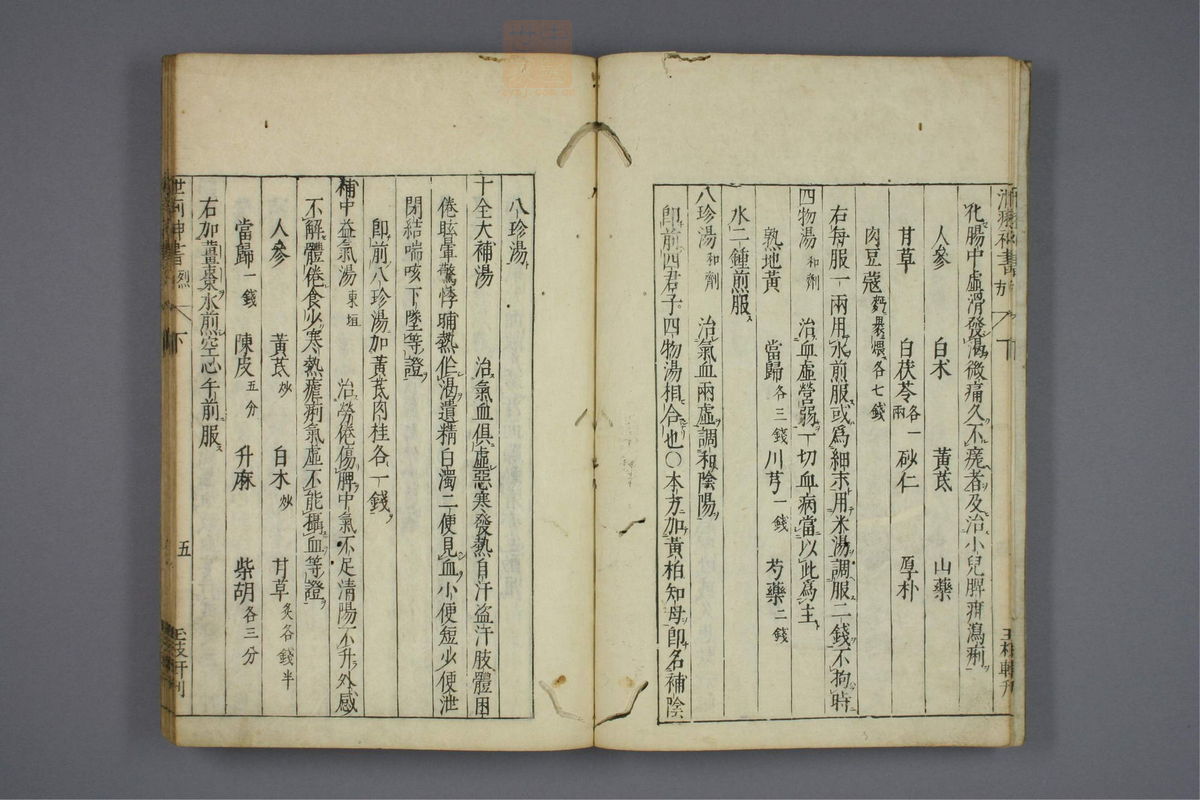 化腸中虛滑發渴微痛久不瘥者及治小兒脾疳瀉痢
人參 白朮 黃芪 山藥
甘草 白茯苓各一兩 砂仁 厚朴
肉豆蔻麪裹煨各七錢
右每服一兩用水煎服或爲細末用米湯調服二錢不拘時
四物湯和劑 治血虛營弱一切血病當以此爲主
熟地黃 當歸各三錢 川芎一錢 芍藥二錢
水二鍾煎服
八珍湯和劑 治氣血兩虛調和陰陽
即前四君子四物湯相合也〇本方加黃柏知母即名補陰
八珍湯
十全大補湯 治氣血俱虛惡寒發熱自汗盜汗肢體困
倦眩暈驚悸晡熱作渴遺精白濁二便見血小便短少便泄
閉結喘咳下墜等證
即前八珍湯加黃芪肉桂各一錢
補中益氣湯東垣 治勞倦傷脾中氣不足清陽不升外感
不解體倦食少寒熱瘧痢氣虛不能攝血等證
人參 黃芪炒 白朮炒 甘草炙各錢半
當歸一錢 陳皮五分 升麻 柴胡各三分
右加薑棗水煎空心午前服
下 五